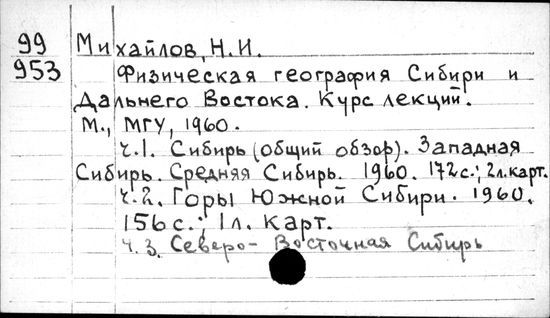 99
953
Михайлов, Н.И.
Физическая география Сибири и
Дальнего Востока. Курс лекций.
М., МГУ, 1960.
Ч.1. Сибирь (общий обзор). Западная
Сибирь. Средняя Сибирь. 1960. 172с.; 2л.карт.
Ч.2. Горы Южной Сибири. 1960.
156 с.; 1л. карт.
Ч.3. Северо-Восточная Сибирь